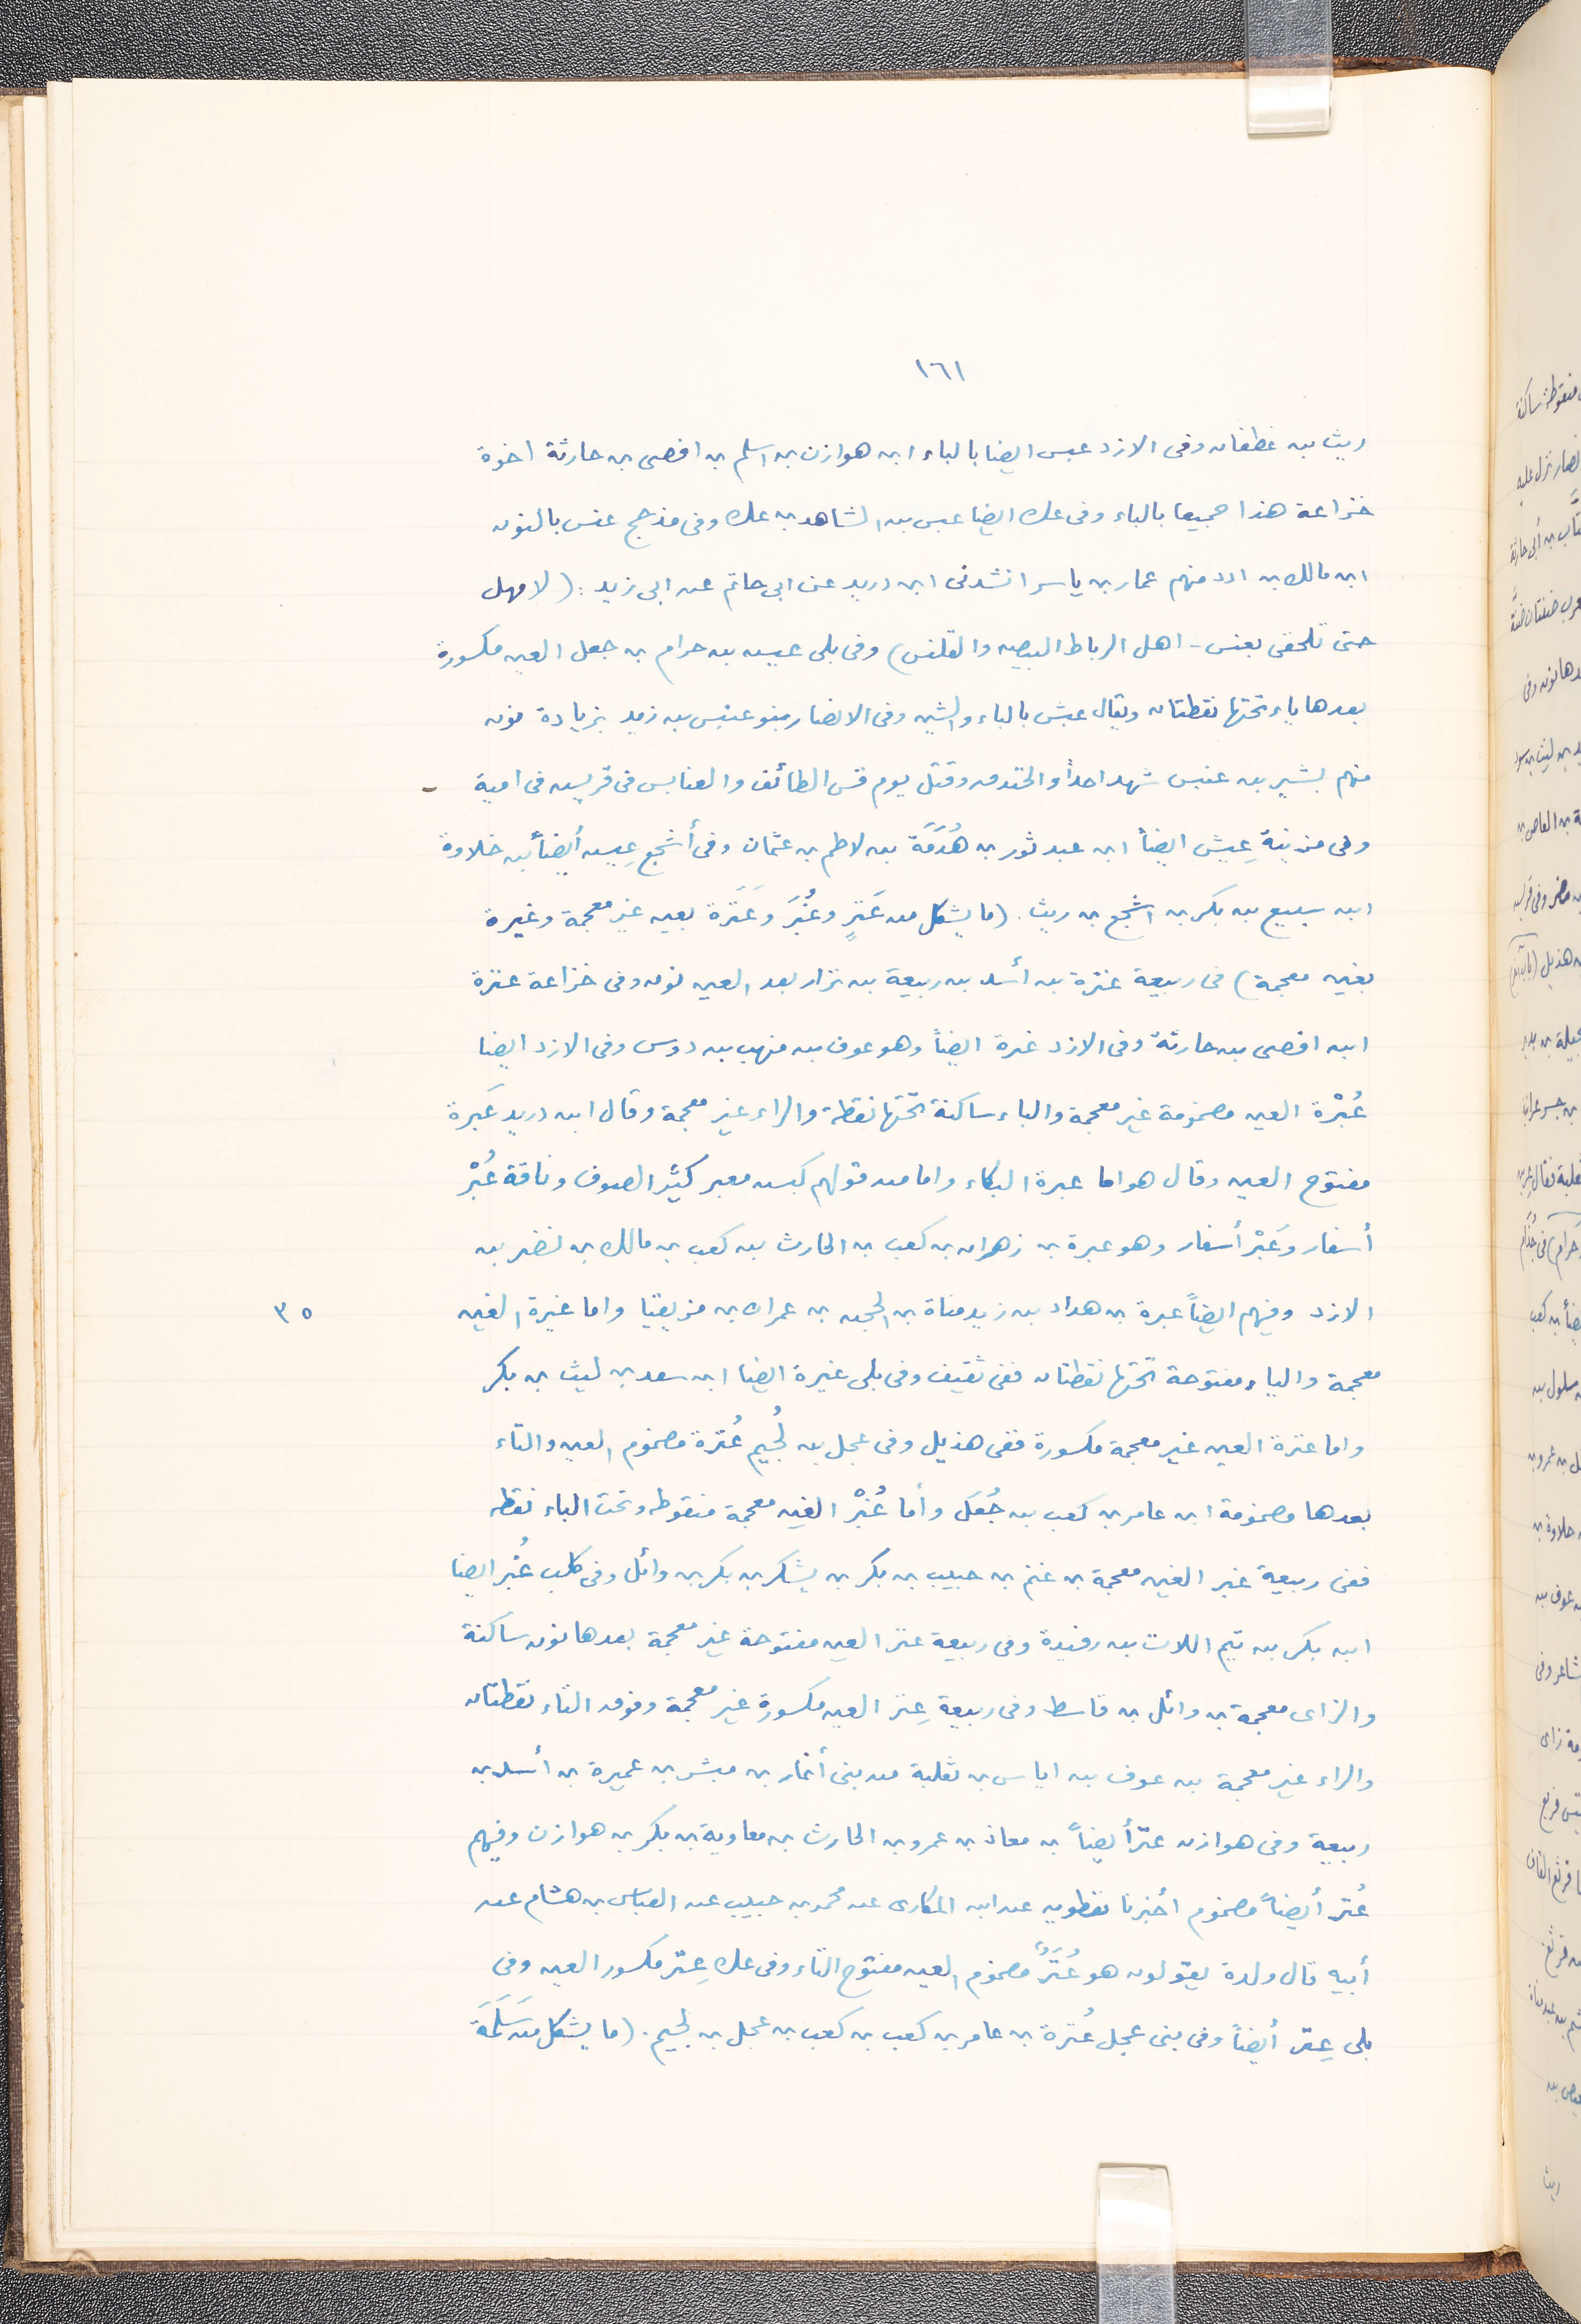 ١٦١
ريث بن غطفان وفى الازد عبس ايضا بالباء ابن هوازن بن اسلم بن افصى بن حارثة اخوة
خزاعة هذا جميعا بالباء وفى عك ايضا عبس بن الشاهد بن عك وفى مذحج عنس بالنون
ابن مالك بن ادد منهم عمار بن ياسر انشدنى ابن دريد عن ابى حاتم عن ابى زيد: (لا مهل
حتى تلحقى بعنس - اهل الرباط البيض والقلنس) وفى بلى عيش بن حرام بن جعل العين مكسورة
بعدها ياء تحتها نقطتان ويقال عبش بالباء والشين وفى الانصار بنو عنبس بن زيد بزيادة نون
منهم بشير بن عنبس شهد احداً والخندق وقتل يوم قس الطائف والعنابس فى قريش فى امية
وفى مزينة عِيش ايضاً ابن عبد ثور بن هُذَمَة بن لاطم بن عثمان وفى أشجع عِيش أيضاً بن خلاوة
ابن سبيع بن بكر بن اشجع بن ريث. (ما يشكل من عَنَزٍ وغُبَرَ وعَنَزَة بعين غير معجمة وغيرة
بغين معجمة) فى ربيعة عنزة بن أسد بن ربيعة بن نزار بعد العين نون وفى خزاعة عنزة
ابن افصى بن حارثة وفى الازد عنزة ايضاً وهو عوف بن منهب بن دوس وفى الازد ايضا
عُبْرة العين مضمومة غير معجمة والباء ساكنة تحتها نقطة والراء غير معجمة وقال ابن دريد عَبرة
مفتوح العين وقال هو اما عبرة البكاء واما من قولهم كبش معبر كثير الصوف وناقة عُبْر
أسفار وعَبْر أسفار وهو عبرة بن زهران بن كعب بن الحارث بن كعب بن مالك بن نضر بن
الازد وفيهم ايضاً عبرة بن هداد بن زيد مناة بن الحجر بن عمران بن مزيقيا واما غيرة الغين
٣٥
معجمة والياء مفتوحة تحتها نقطتان ففى ثقيف وفى بلى غيرة ايضا ابن سعد بن ليث بن بكر
واما عترة العين غير معجمة مكسورة ففى هذيل وفى عجل بن لُجيم عُترة مضموم العين والتاء
بعدها مضمومة ابن عامر بن كعب بن جُعَل وأما غُبْر الغين معجمة منقوطة وتحت الباء نقطة
ففى ربيعة غبر الغين معجمة بن غنم بن حبيب بن بكر بن يشكر بن بكر بن وائل وفى كلب غُبر ايضا
ابن بكر بن تيم اللات بن رفيدة وفى ربيعة عنز العين مفتوحة غير معجمة بعدها نون ساكنة
والزاى معجمة بن وائل بن قاسط وفى ربيعة عِتر العين مكسورة غير معجمة وفوق التاء نقطتان
والراء غير معجمة بن عوف بن اياس بن ثعلبة من بنى أنمار بن مبشر بن عميرة بن أسد بن
ربيعة وفى هوازن عتر أيضاً بن معاذ بن عمرو بن الحارث بن معاوية بن بكر بن هوازن وفيهم
عُتر أيضاً مضموم أخبرنا نفطويه عن ابن المكارى عن محمد بن حبيب عن العباس بن هشام عن
أبيه قال ولدة يقولون هو عُتَرٌ مضموم العين مفتوح التاء وفى عك عِتر مكسور العين وفى
بلى عِتر أيضاً وفى بنى عجل عُترة بن عامر بن كعب بن كعب بن عجل بن لجيم. (ما يشكل من سَلَمَة